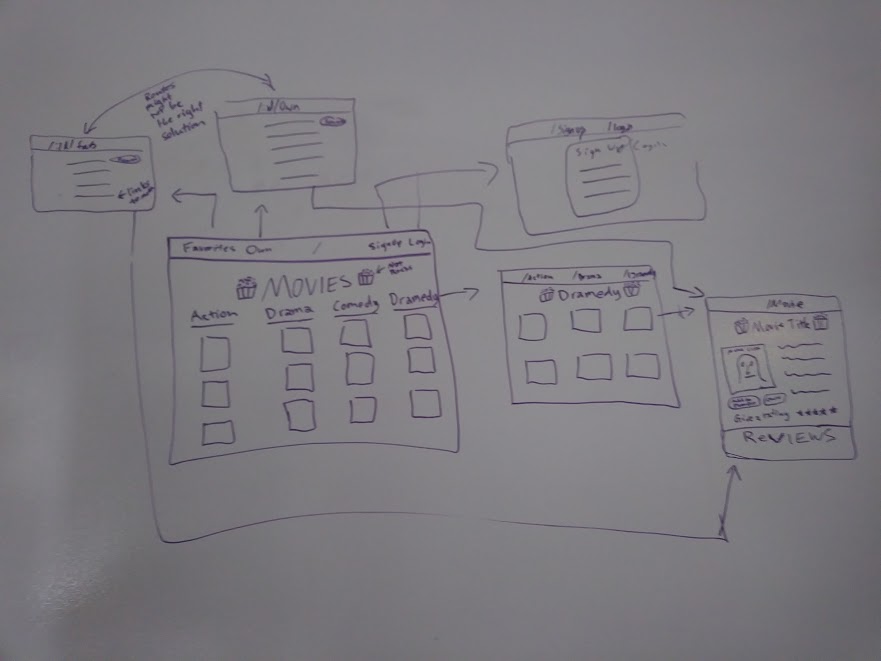 Routes
might
not be
the right
solution
/:id/Own
/:id/favs
← links
/signup /login
Sign Up / Login
Favorites Own / Signup Login
MOVIES
Action Drama Comedy Dramedy
/Action /Drama /Comedy
Dramedy
/Movie
Movie Title
Give a rating ★★★★★
REVIEWS